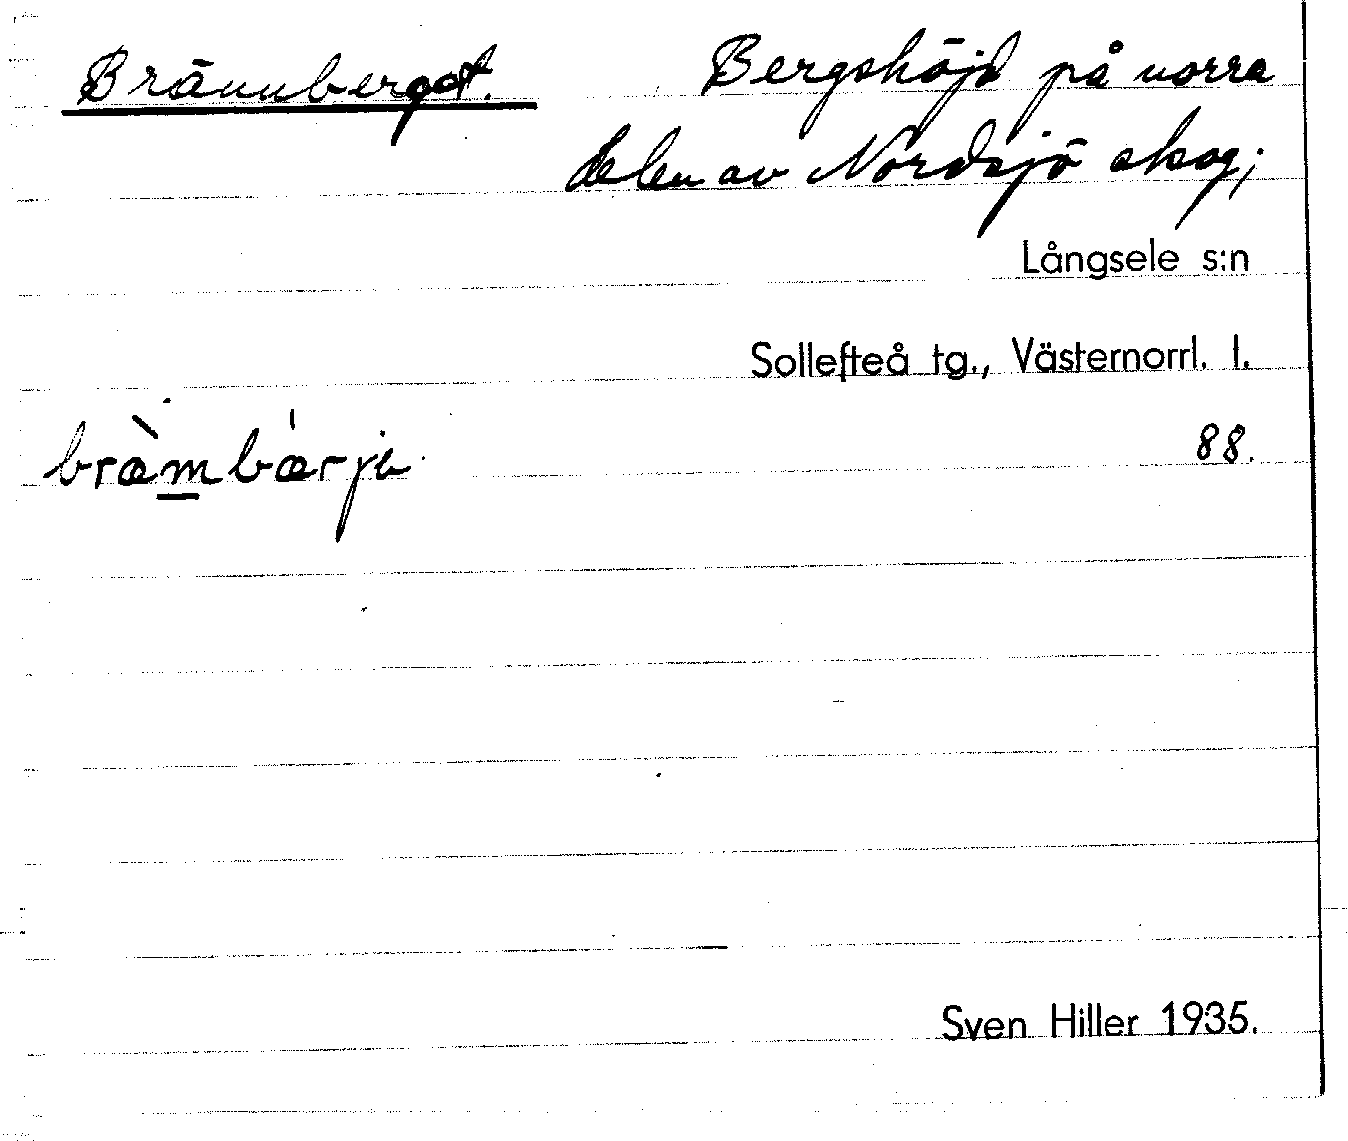 Brännberget. Bergshöjd på norra
delen av Nordsjö skog;
Långsele s:n
Sollefteå tg., Västernorrl. l.
bræ̀m̲bǽrjə 88.
Sven Hiller 1935.